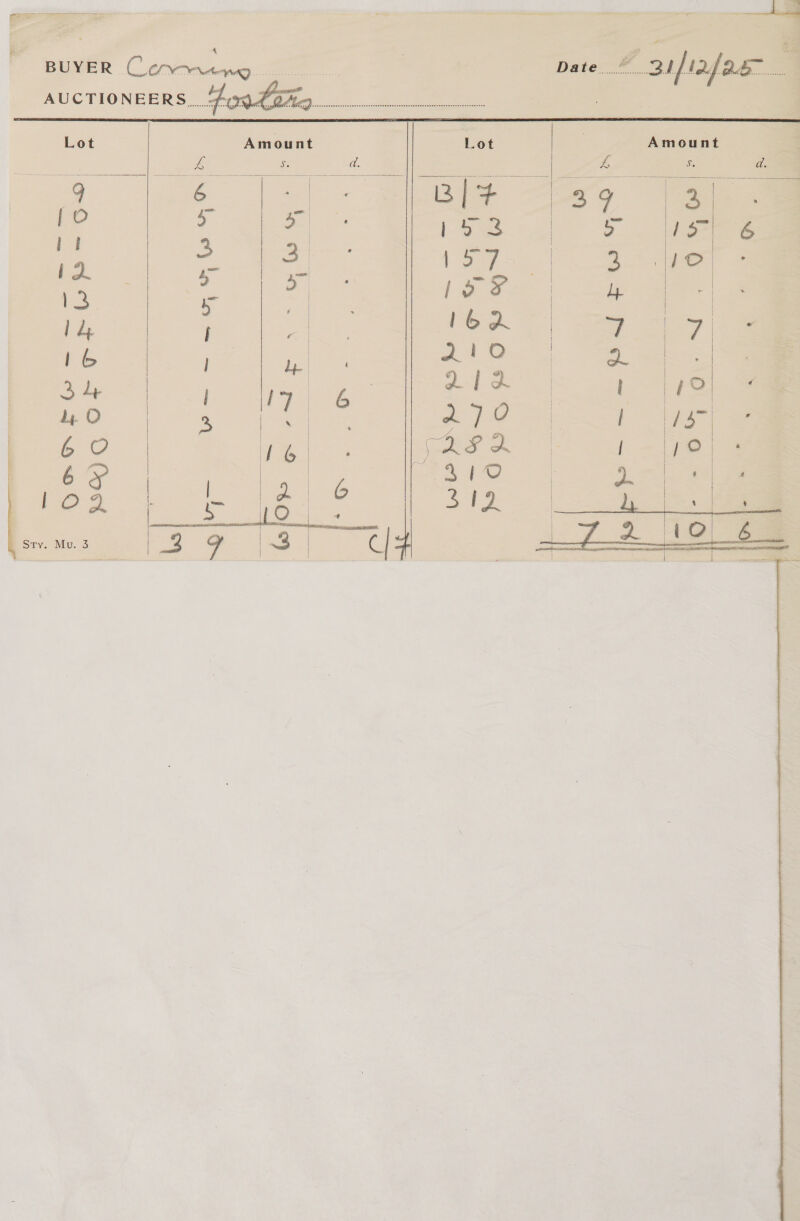 BUYER
Date 31/12/25
AUCTIONEERS Fosters
Lot Amount Lot Amount
£ s. d. £ s. d.
9 6 - - B/F 39 3 -
10 5 5 - 153 5 15 6
11 3 3 - 157 3 10 -
12 5 5 - 158 4 - -
13 5 - - 162 7 7 -
14 1 - 210 2 -
16 1 4 - 212 1 10 -
34 1 17 6 270 1 15 -
40 3 - - 282 1 10 -
60 16 - 310 2 - -
68 1 2 6 312 4 - -
102 5 10 - 72 10 6
Sty. Mu. 3 39 3 C/F